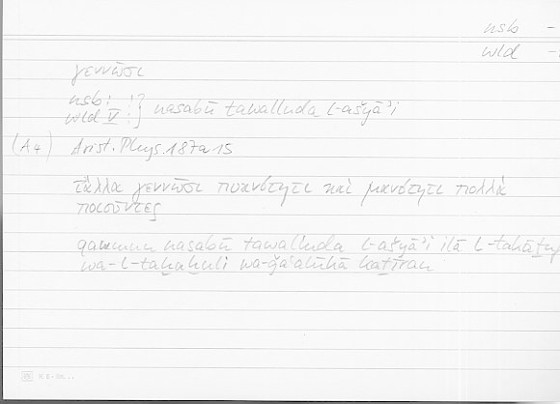 nsb -
wld -
γεννῶσι
nsb: !
wld V: ! } nasabū tawalluda l-ašyāʾi
(A4) Arist. Phys. 187a15
τἆλλα γεννῶσι πυκνότητι καὶ μανότητι πολλὰ
ποιοῦντες
qawmun nasabū tawalluda l-ašyāʾi ilā l-takāṯu
wa-l-taḫalḫuli wa-ǧaʿalūhā kaṯīran